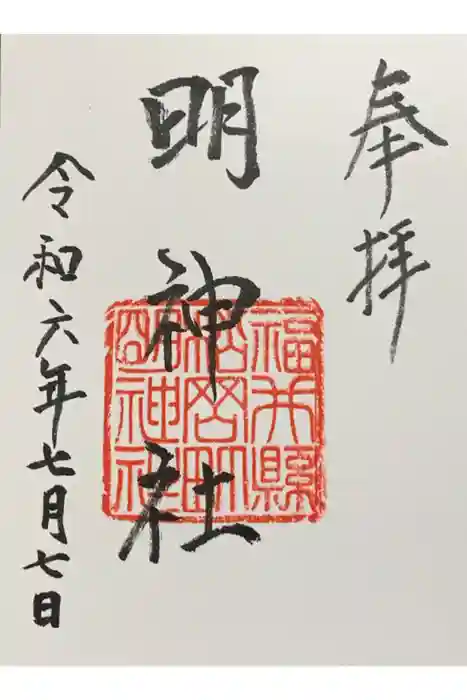 奉拝
明神社
令和六年七月七日
福井縣
神社